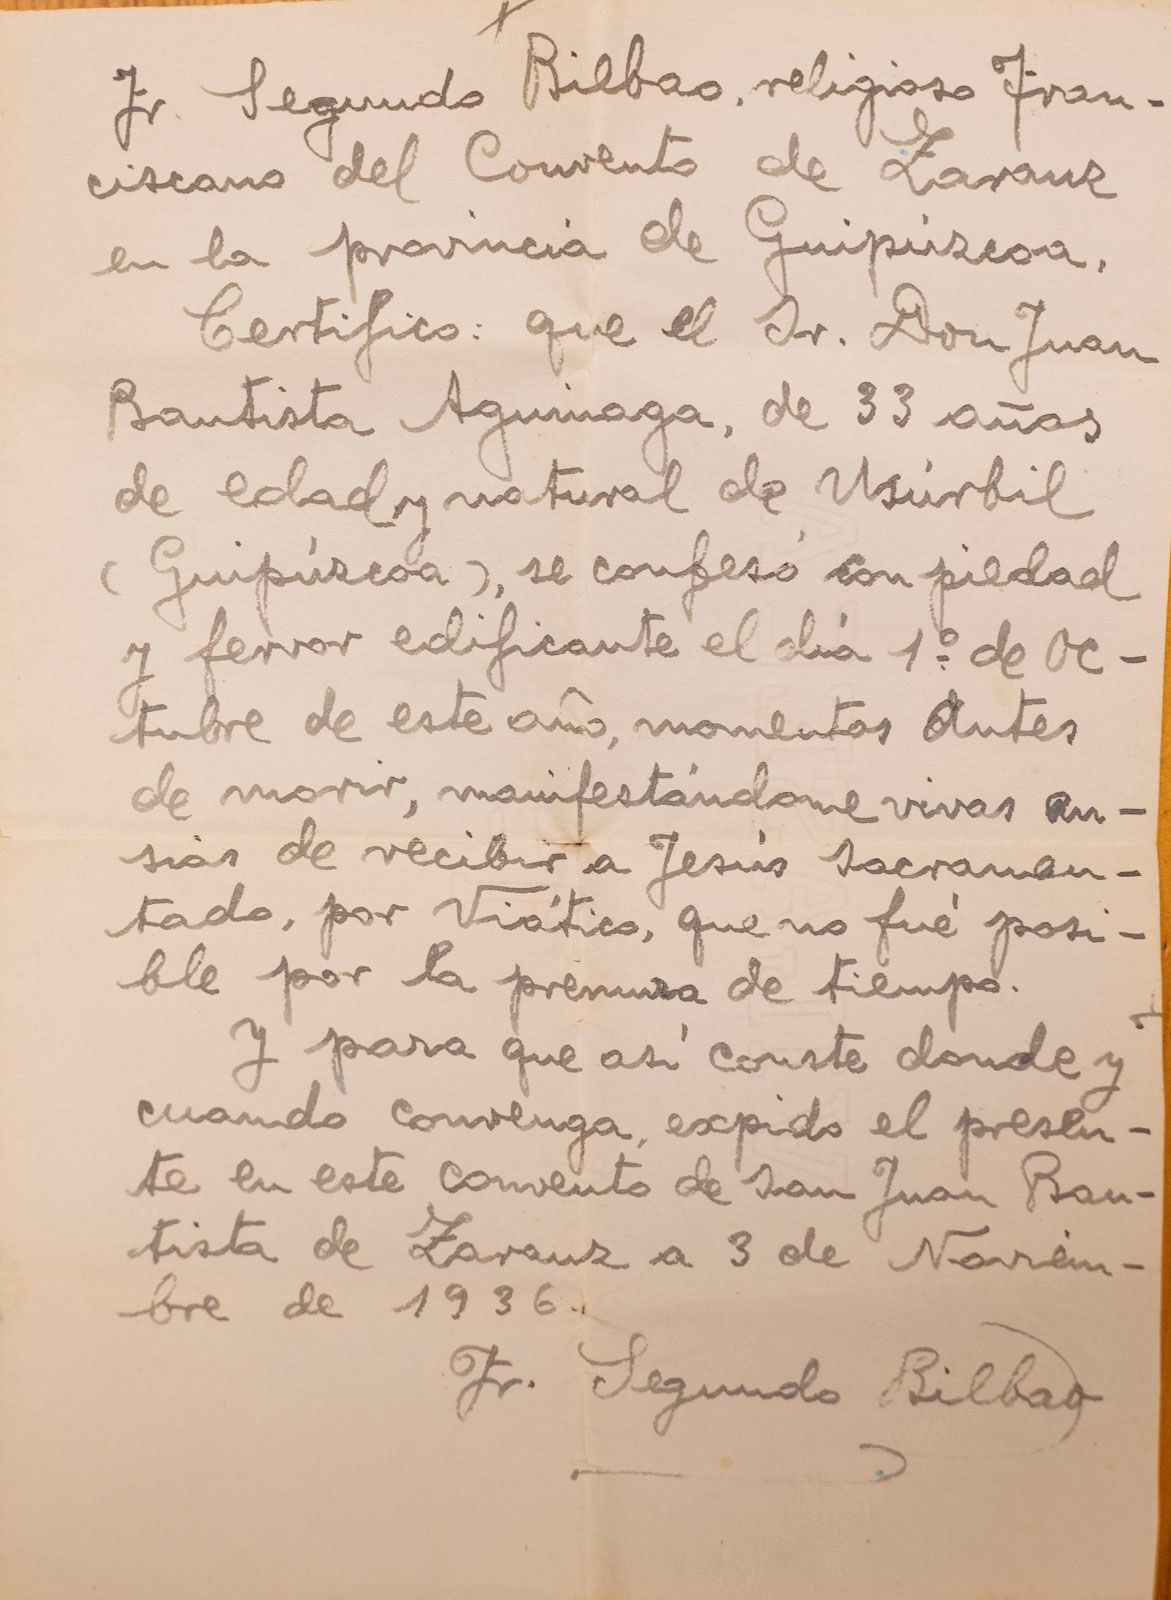 Fr. Segundo Bilbao, religioso Fran-
ciscano del Convento de Zarauz
en la provincia de Guipúzcoa,
Certifico: que el Sr. Don Juan
Bautista Aguinaga, de 33 años
de edad y natural de Usúrbil
(Guipúzcoa), se confesó con piedad
y fervor edificante el día 1.º de Oc-
tubre de este año, momentos antes
de morir, manifestándome vivas an-
sias de recibir a Jesús Sacramen-
tado, por Viático, que no fué posi-
ble por la premura de tiempo.
Y para que así conste donde y
cuando convenga, expido el presen-
te en este convento de San Juan Bau-
tista de Zarauz a 3 de Noviem-
bre de 1936.
Fr. Segundo Bilbao